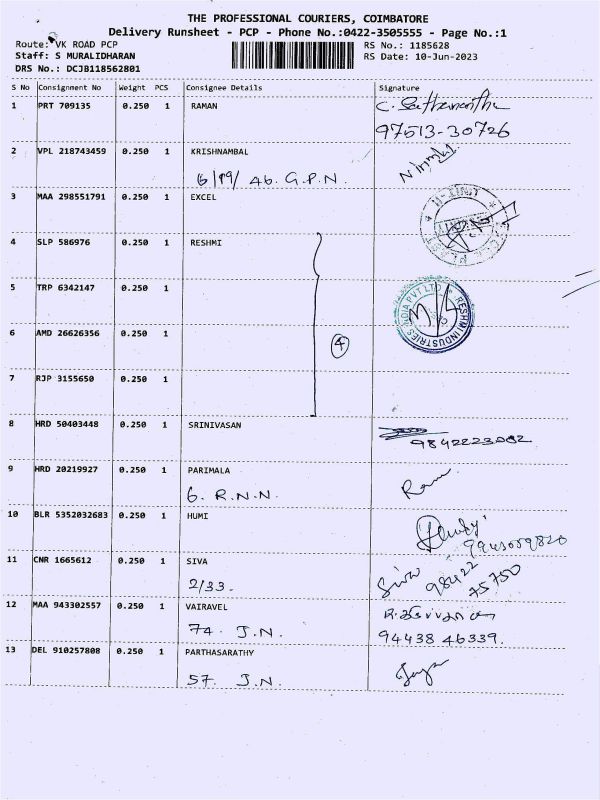 THE PROFESSIONAL COURIERS, COIMBATORE
Delivery Runsheet - PCP - Phone No.:0422-3505555 - Page No.:1
Route: VK ROAD PCP
Staff: S MURALIDHARAN
DRS No.: DCJB118562801
RS No.: 1185628
RS Date: 10-Jun-2023
S No Consignment No Weight PCS Consignee Details Signature
1 PRT 709135 0.250 1 RAMAN
97513-30726
2 VPL 218743459 0.250 1 KRISHNAMBAL
G.P.N.
3 MAA 298551791 0.250 1 EXCEL
4 SLP 586976 0.250 1 RESHMI
5 TRP 6342147 0.250 1
RESHMI INDUSTRIES INDIA PVT LTD
6 AMD 26626356 0.250 1
4
7 RJP 3155650 0.250 1
8 HRD 50403448 0.250 1 SRINIVASAN
9842223082
9 HRD 20219927 0.250 1 PARIMALA
6. R.N.N.
10 BLR 5352032683 0.250 1 HUMI
11 CNR 1665612 0.250 1 SIVA
2/33. Siva 98422 75750
12 MAA 943302557 0.250 1 VAIRAVEL
74. J.N. 94438 46339.
13 DEL 910257808 0.250 1 PARTHASARATHY
57. J.N.